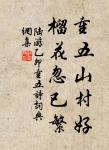 重五山村好
榴花忽已繁
陆游乙卯重五诗词典
网集